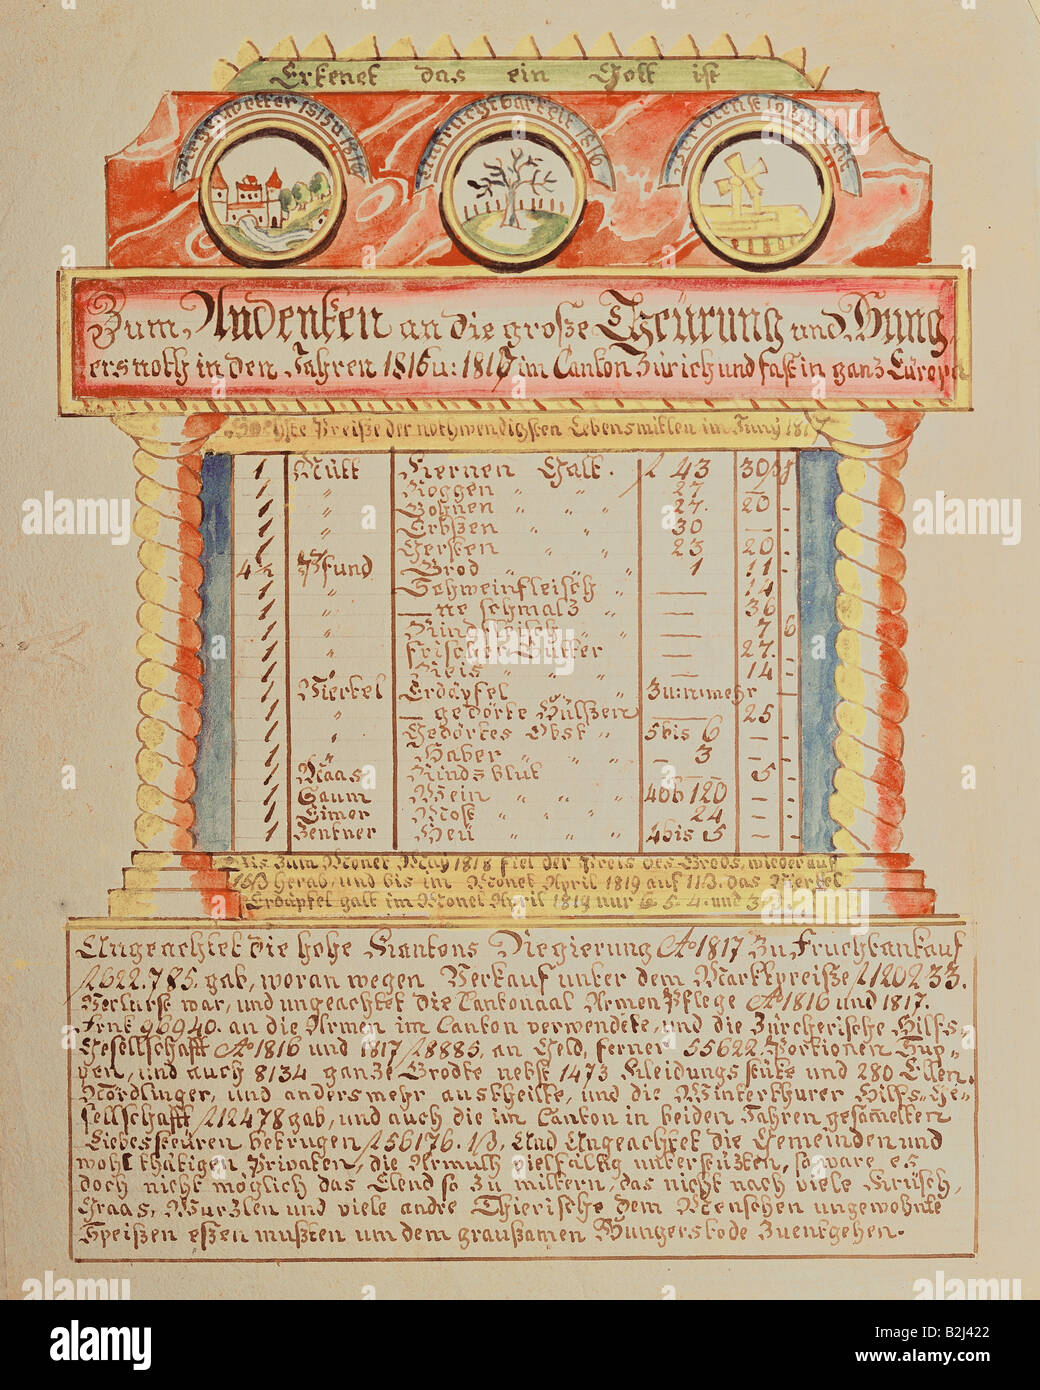 Erkenet das ein Gott ist
Regenwetter 1815 u 1816
Unfruchtbarkeit 1816
Zum Andenken an die große Theürung und Hung
ersnoth in den Jahren 1816 u: 1817 im Canton Zürich und fast in ganz Eüropa
Höchste Preiße der nothwendigsten Lebensmitlen im Juny 1817
1 Mütt Kernen Galt. f 43 30 ß
1 " Roggen " " 27 —
1 " Bohnen " " " 27. 20 -
1 " Erbßen " " 30 — -
1 " Gersten " " 23 20 -
4½ Pfund Brod " " " 1 11 -
1 " Schweinfleisch " — 14 -
1 " — ne schmalz " — 36
1 " Rindfleisch " " — 7 6
1 " Frischer Butter — 27. -
1 " Reis " " " — 14 -
1 Vierkel Erdäpfel " Zu: nmehr
1 " — gedörte Hülszen — 25 -
1 " Gedörtes Obst " 5 bis 6 — -
1 " Haber " " — 3 — -
1 Maas Rindsblut 5 -
1 Saum Wein " " " 120 — -
1 Eimer Most " " 24 — -
1 Zentner Heu " " " 4 bis 5 — -
Bis zum Monet May 1818 fiel der Preis des Brods, wieder auf
15ß herab, und bis im Monet April 1819 auf 11ß. das Vierkel
Erdäpfel galt im Monet April 1819 nur 6 5. 4. und 3
Ungeachtet die hohe Kantons Regierung Ao 1817 Zu Fruchtankauf
f 622.785. gab, woran wegen Verkauf unter dem Marktpreiße f 120233.
Verlurst war, und ungeachtet die Cantonaal Armen Pflege Ao 1816 und 1817.
Frnk 96940. an die Armen im Canton verwendete, und die Zürcherische Hilfs-
Gesellschafft Ao 1816 und 1817 f 8885. an Geld, ferner 55622. Portionen Sup-
pen, und auch 8134 ganze Brodte nebst 1473 Kleidungsstüke und 280 Ellen.
Nördlinger, und anders mehr austheilte, und die Winterthurer Hilfs-Ge-
sellschafft f 12478 gab, und auch die im Canton in beiden Jahren gesam̄elten
Liebessteüren betrugen f 56176. 1ß, Und Ungeachtet die Gemeinden und
wohlthätigen Privaten, die Armuth vielfältig unterstüzten, so ware es
doch nicht möglich das Elend so zu miltern, das nicht nach viele Krüsch,
Graas, Wurzlen und viele andre Thierische dem Menschen ungewohnte
Speißen eßen mußten um dem graußamen Hungerstode Zuentgehen.
alamy
Image ID: B2J422
www.alamy.com